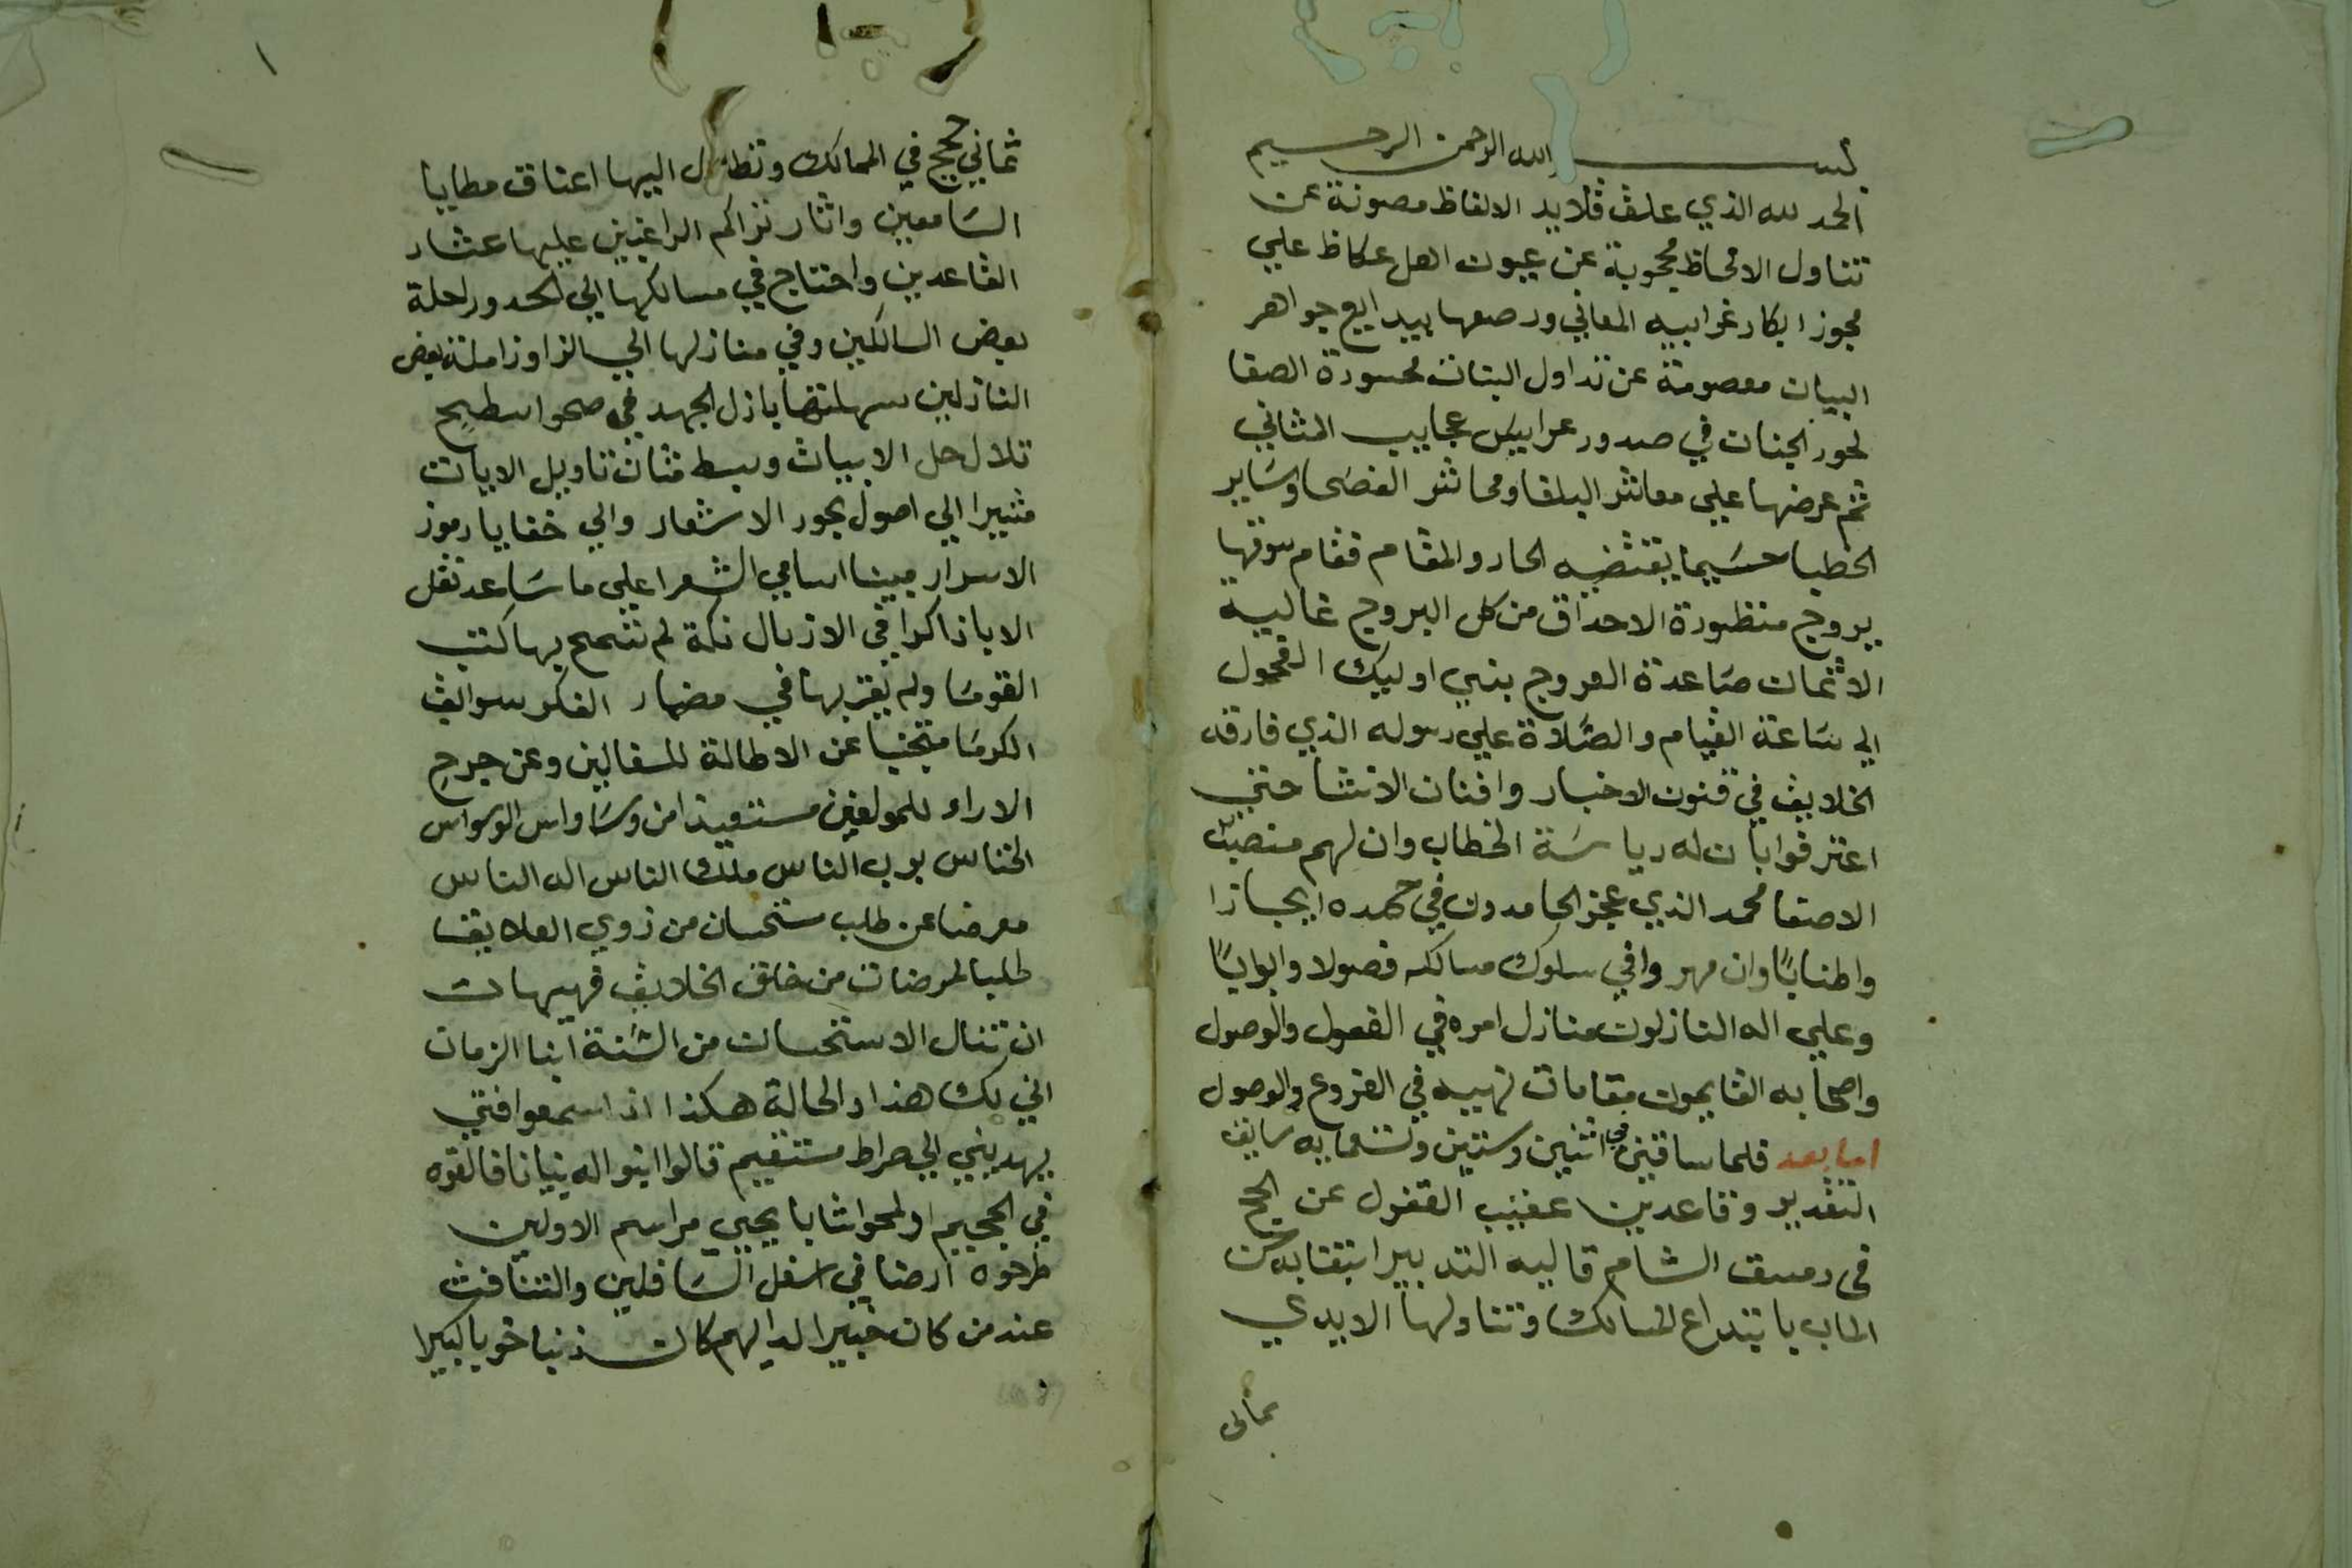 بسم الله الرحمن الرحيم
الحمد لله الذي علق قلايد الالفاظ مصونة عن
تتناول الالحاظ محجوبة عن عيون اهل عكاظ علي
مجوز ابكار غرابيه المعاني ورصعها ببدايع جواهر
البيان معصومة عن تداول البنان محسودة الصفا
لحور الجنان في صدور عرايس عجايب المثاني
ثم عرضها علي معاشر البلغا ومحاشر الفصحا وسَاير
الخطبا حسَبما يقتضيه الحار والمقام فقام سوقها
بروج منظورة الاحداق من كل البروج غالية
الاثمان صَاعدة العروج بنبي اوليك الفحول
الي سَاعة القيام والصَّلاة علي رسوله الذي فارقه
الخلايق في فنون الاخبار وافنان الانشا حتي
اعترفوا بان له رياسَة الخطاب وان لهم منصب
الاصغا محمد الذي عجز الحامدون في حمده ايجازا
واطنابًا وان مهروا في سلوك مسالكه فصولا وابوابًا
وعلي اله النازلون منازل امره في الفصول والوصول
واصحابه القايمون مقامات نهيه في الفروع والوصول
اما بعد فلما ساقني في اثنين وستين وتسعمايه سايق
التقدير وقاعدين عقيب القفول عن الحج
في دمسق الشام قاليه التدبير
الماب يا المسالك وتتناولها الايدي
ثماني
ثماني حجج في الممالك وتطاول اليها اعناق مطايا
السَامعين واثار تراكم الراغبين عليها عشار
القاعدين واحتاج في مسالكها الي الحد وراحلة
بعض السالكين وفي منازلها الي الزاد وزاملة بعض
النازلين سهلتها باذل الجهد في صحو اسطح
تلال حل الابيات وبسط تاويل الايات
مشيرا الي اصول بحور الاشعار والي خفايا رموز
الاسرار مبينا اسامي الشعرا علي ما سَاعد نقل
الابا ذاكرا في الاذيال نكتة لم تسمح بها كتب
القومَا ولم يفز بها في مضمار الفكر سوابق
الكرمَا متجنبا عن الاطالة للسفالين وعن جرح
الاراء للمولفين مستعيذا من وسَاواس الوسواس
الخناس برب الناس ملك الناس اله الناس
معرضا عن طلب ستحسان من ذوي العلايقا
طلبا لمرضات من خالق الخلايق فهيهات
ان تنال الاستحسان من السَنة ابنا الزمان
اني لك هذا والحالة هكذا اذا سمعوا فتي
يهديني الي صراط مستقيم قالوا ابنوا له بنيانا فالقوه
في الجحيم او لمحوا شابا يحيي مراسم الاولين
طرحوه ارضا في اسفل السَافلين والتنافث
عند من كان خبيرا لديهم كان ذنبا حوبا كبيرا